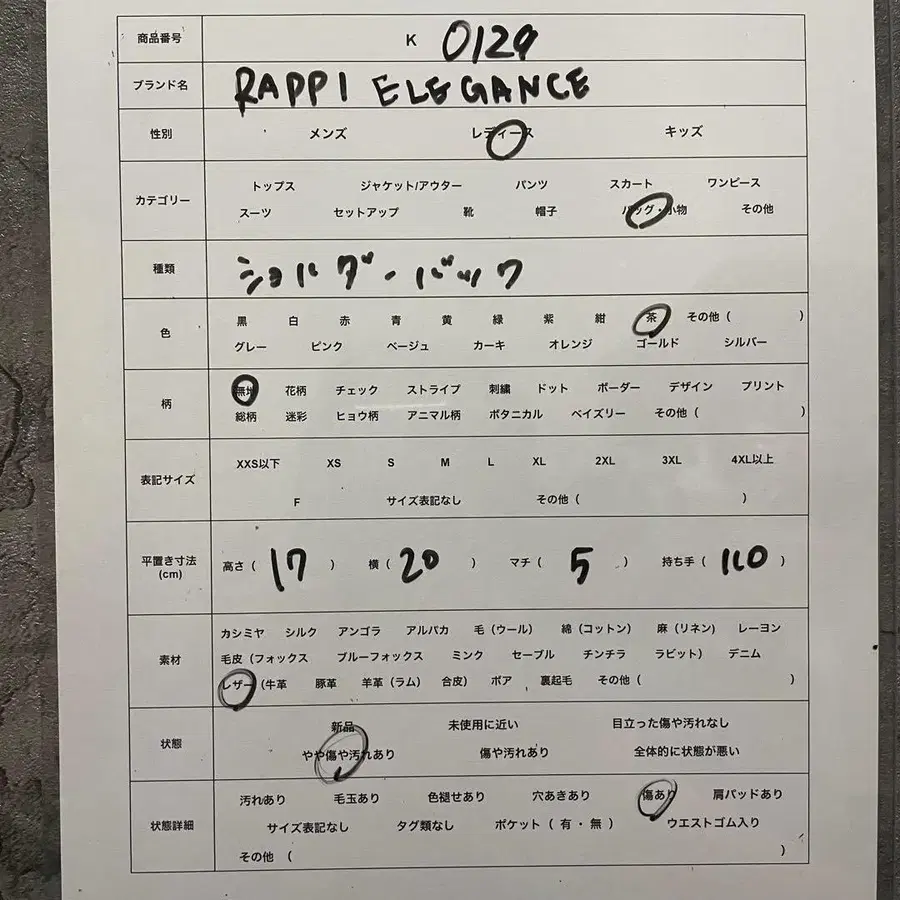 商品番号 K 0129
ブランド名 RAPPI ELEGANCE
性別 メンズ レディース キッズ
カテゴリー
トップス ジャケット/アウター パンツ スカート ワンピース
スーツ セットアップ 靴 帽子 バッグ・小物 その他
種類 ショルダーバック
色
黒 白 赤 青 黄 緑 紫 紺 茶 その他 ( )
グレー ピンク ベージュ カーキ オレンジ ゴールド シルバー
柄
無地 花柄 チェック ストライプ 刺繍 ドット ボーダー デザイン プリント
総柄 迷彩 ヒョウ柄 アニマル柄 ボタニカル ペイズリー その他 ( )
表記サイズ
XXS以下 XS S M L XL 2XL 3XL 4XL以上
F サイズ表記なし その他 ( )
平置き寸法
(cm)
高さ ( 17 ) 横 ( 20 ) マチ ( 5 ) 持ち手 ( 110 )
素材
カシミヤ シルク アンゴラ アルパカ 毛 (ウール) 綿 (コットン) 麻 (リネン) レーヨン
毛皮 (フォックス ブルーフォックス ミンク セーブル チンチラ ラビット) デニム
レザー (牛革 豚革 羊革 (ラム) 合皮) ボア 裏起毛 その他 ( )
状態
新品 未使用に近い 目立った傷や汚れなし
やや傷や汚れあり 傷や汚れあり 全体的に状態が悪い
状態詳細
汚れあり 毛玉あり 色褪せあり 穴あきあり 傷あり 肩パッドあり
サイズ表記なし タグ類なし ポケット ( 有・無 ) ウエストゴム入り
その他 ( )